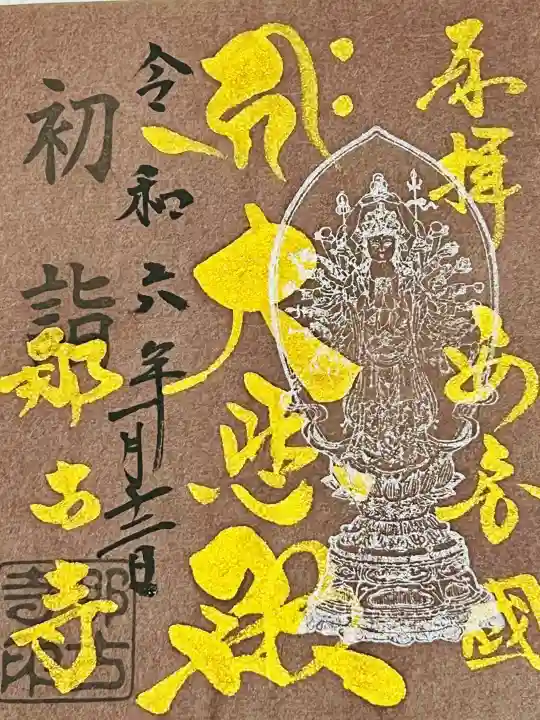 奉拝 安房國
大悲殿
令和六年一月十二日
初詣
那古寺
那古寺印